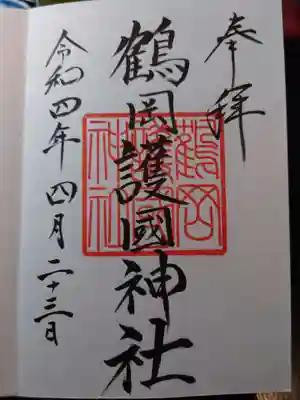 奉拝
鶴岡護國神社
鶴岡護國神社
令和四年四月二十三日